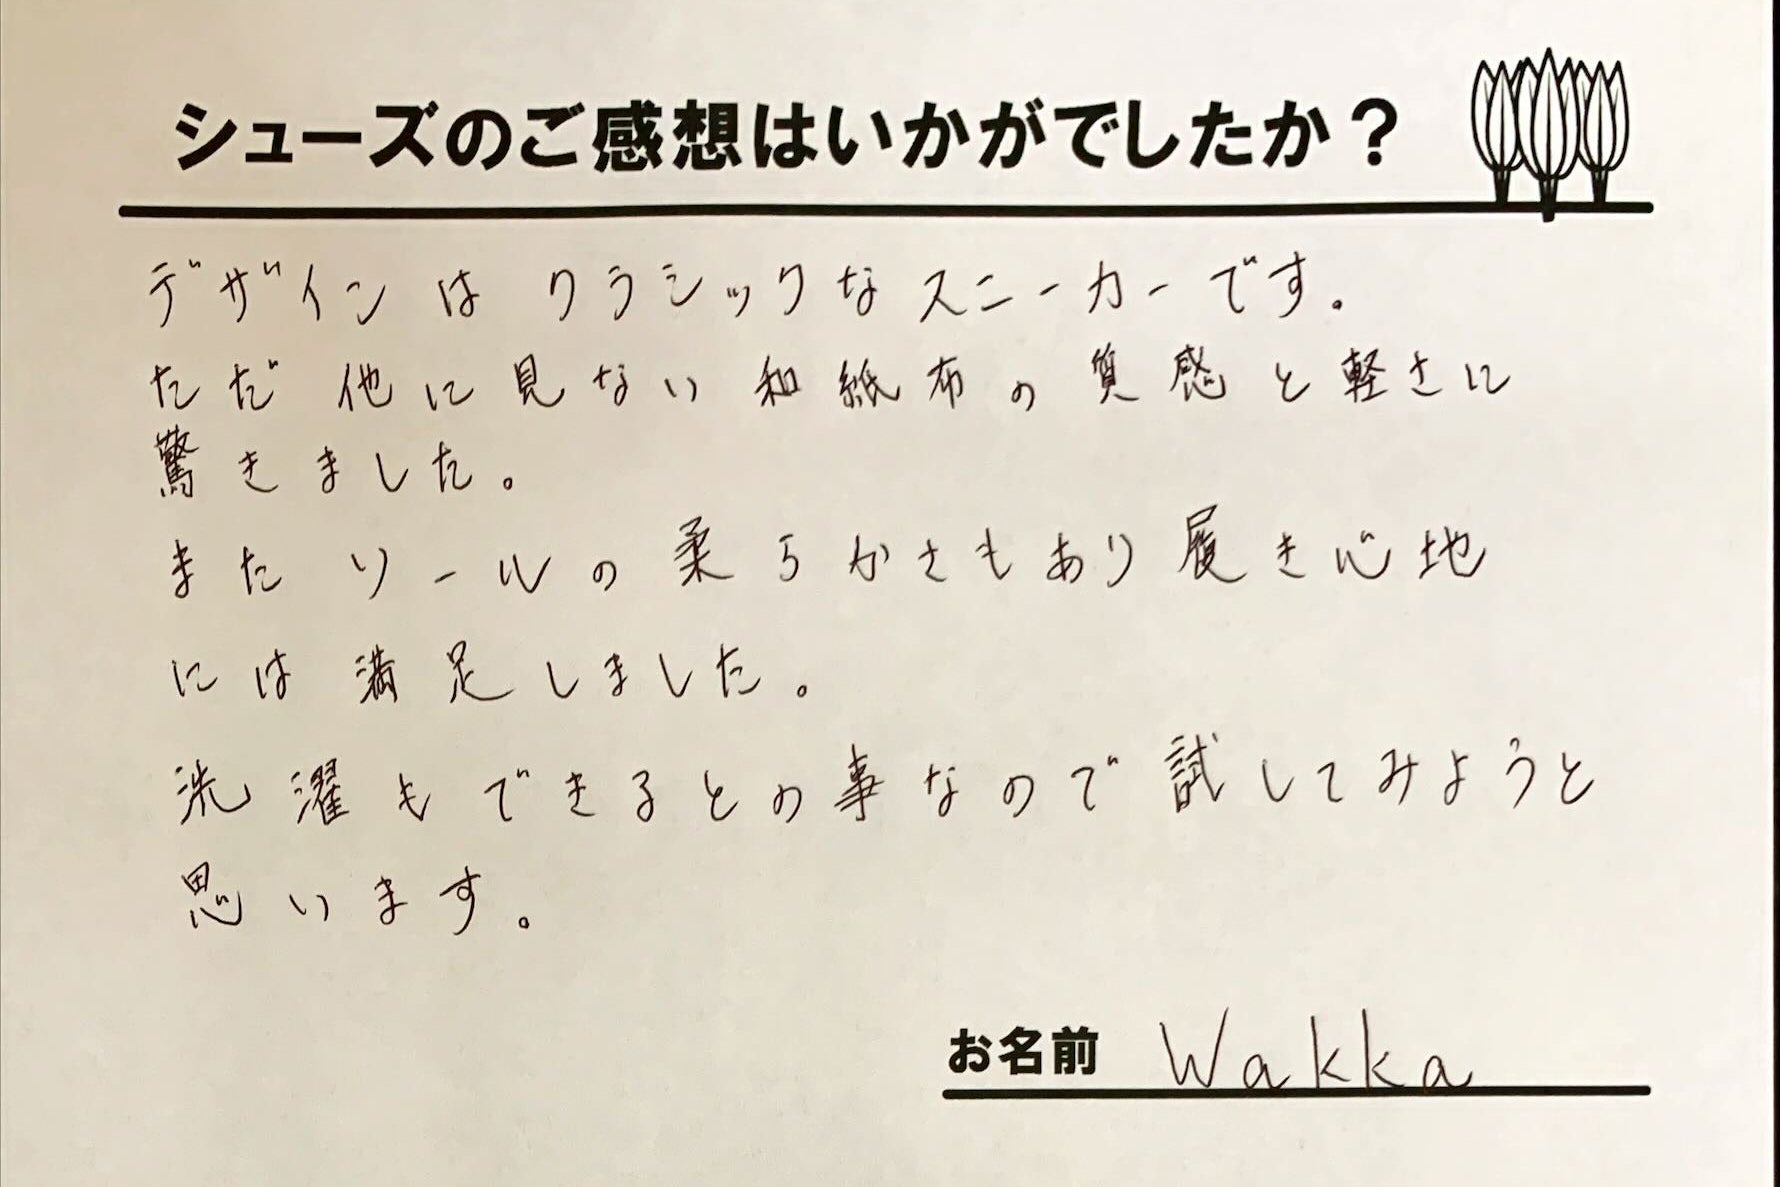 シューズのご感想はいかがでしたか？
デザインはクラシックなスニーカーです。
ただ他に見ない和紙布の質感と軽さに
驚きました。
またソールの柔らかさもあり履き心地
には満足しました。
洗濯もできるとの事なので試してみようと
思います。
お名前 Wakka